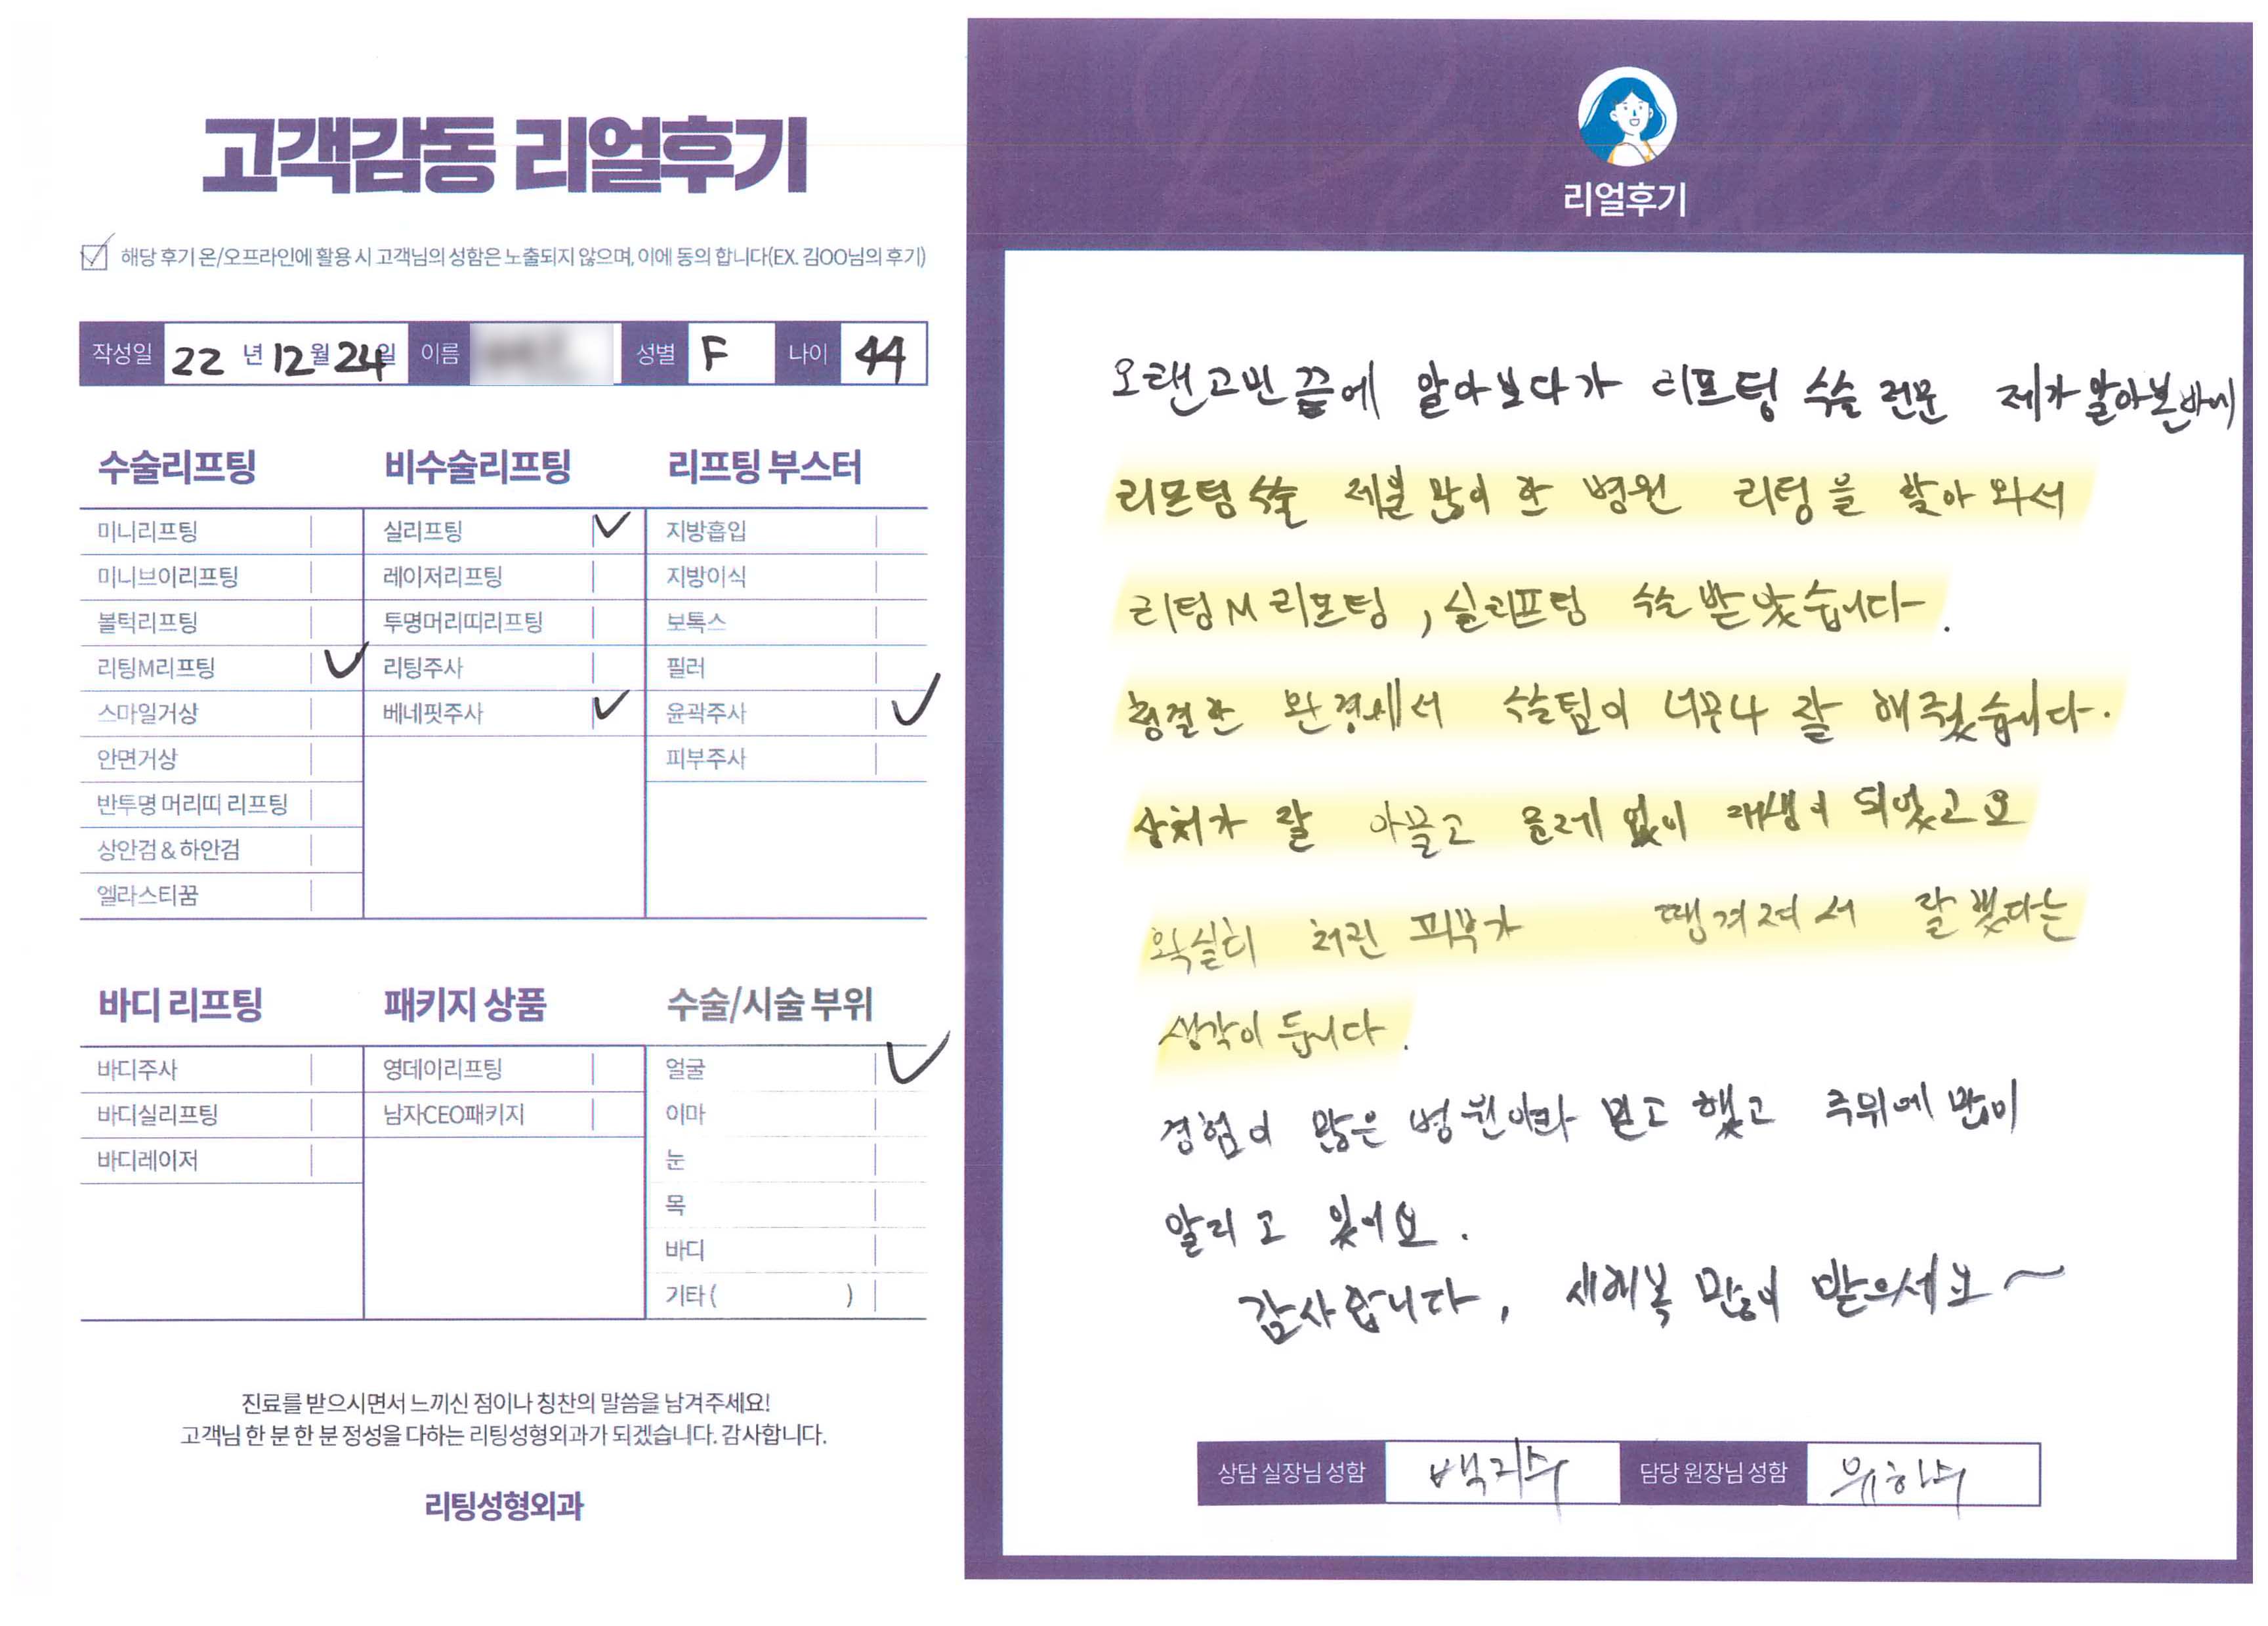 고객감동 리얼후기
해당 후기 온/오프라인에 활용 시 고객님의 성함은 노출되지 않으며, 이에 동의 합니다(EX. 김OO님의 후기)
작성일 22 년 12 월 24 일 이름 성별 F 나이 44
수술리프팅
미니리프팅
미니브이리프팅
볼턱리프팅
리팅M리프팅
스마일거상
안면거상
반투명 머리띠 리프팅
상안검 & 하안검
엘라스티꿈
비수술리프팅
실리프팅
레이저리프팅
투명머리띠리프팅
리팅주사
베네핏주사
리프팅 부스터
지방흡입
지방이식
보톡스
필러
윤곽주사
피부주사
바디 리프팅
바디주사
바디실리프팅
바디레이저
패키지 상품
영데이리프팅
남자CEO패키지
수술/시술 부위
얼굴
이마
눈
목
바디
기타 ( )
진료를 받으시면서 느끼신 점이나 칭찬의 말씀을 남겨주세요!
고객님 한 분 한 분 정성을 다하는 리팅성형외과가 되겠습니다. 감사합니다.
리팅성형외과
리얼후기
오랜고민끝에 알아보다가 리프팅 수술 전문 제가 알아본바에
리프팅 수술 제일 많이 한 병원 리팅을 찾아 와서
리팅M 리프팅, 실리프팅 수술 받았습니다.
청결한 환경에서 수술팀이 너무나 잘 해주셨습니다.
상처가 잘 아물고 문제 없이 재생이 되었고요
확실히 처진 피부가 땡겨져서 잘했다는
생각이 듭니다.
경험이 많은 병원이라 믿고 했고 주위에 많이
알리고 있어요.
감사합니다, 새해복 많이 받으세요~
상담 실장님 성함 백지수 담당 원장님 성함